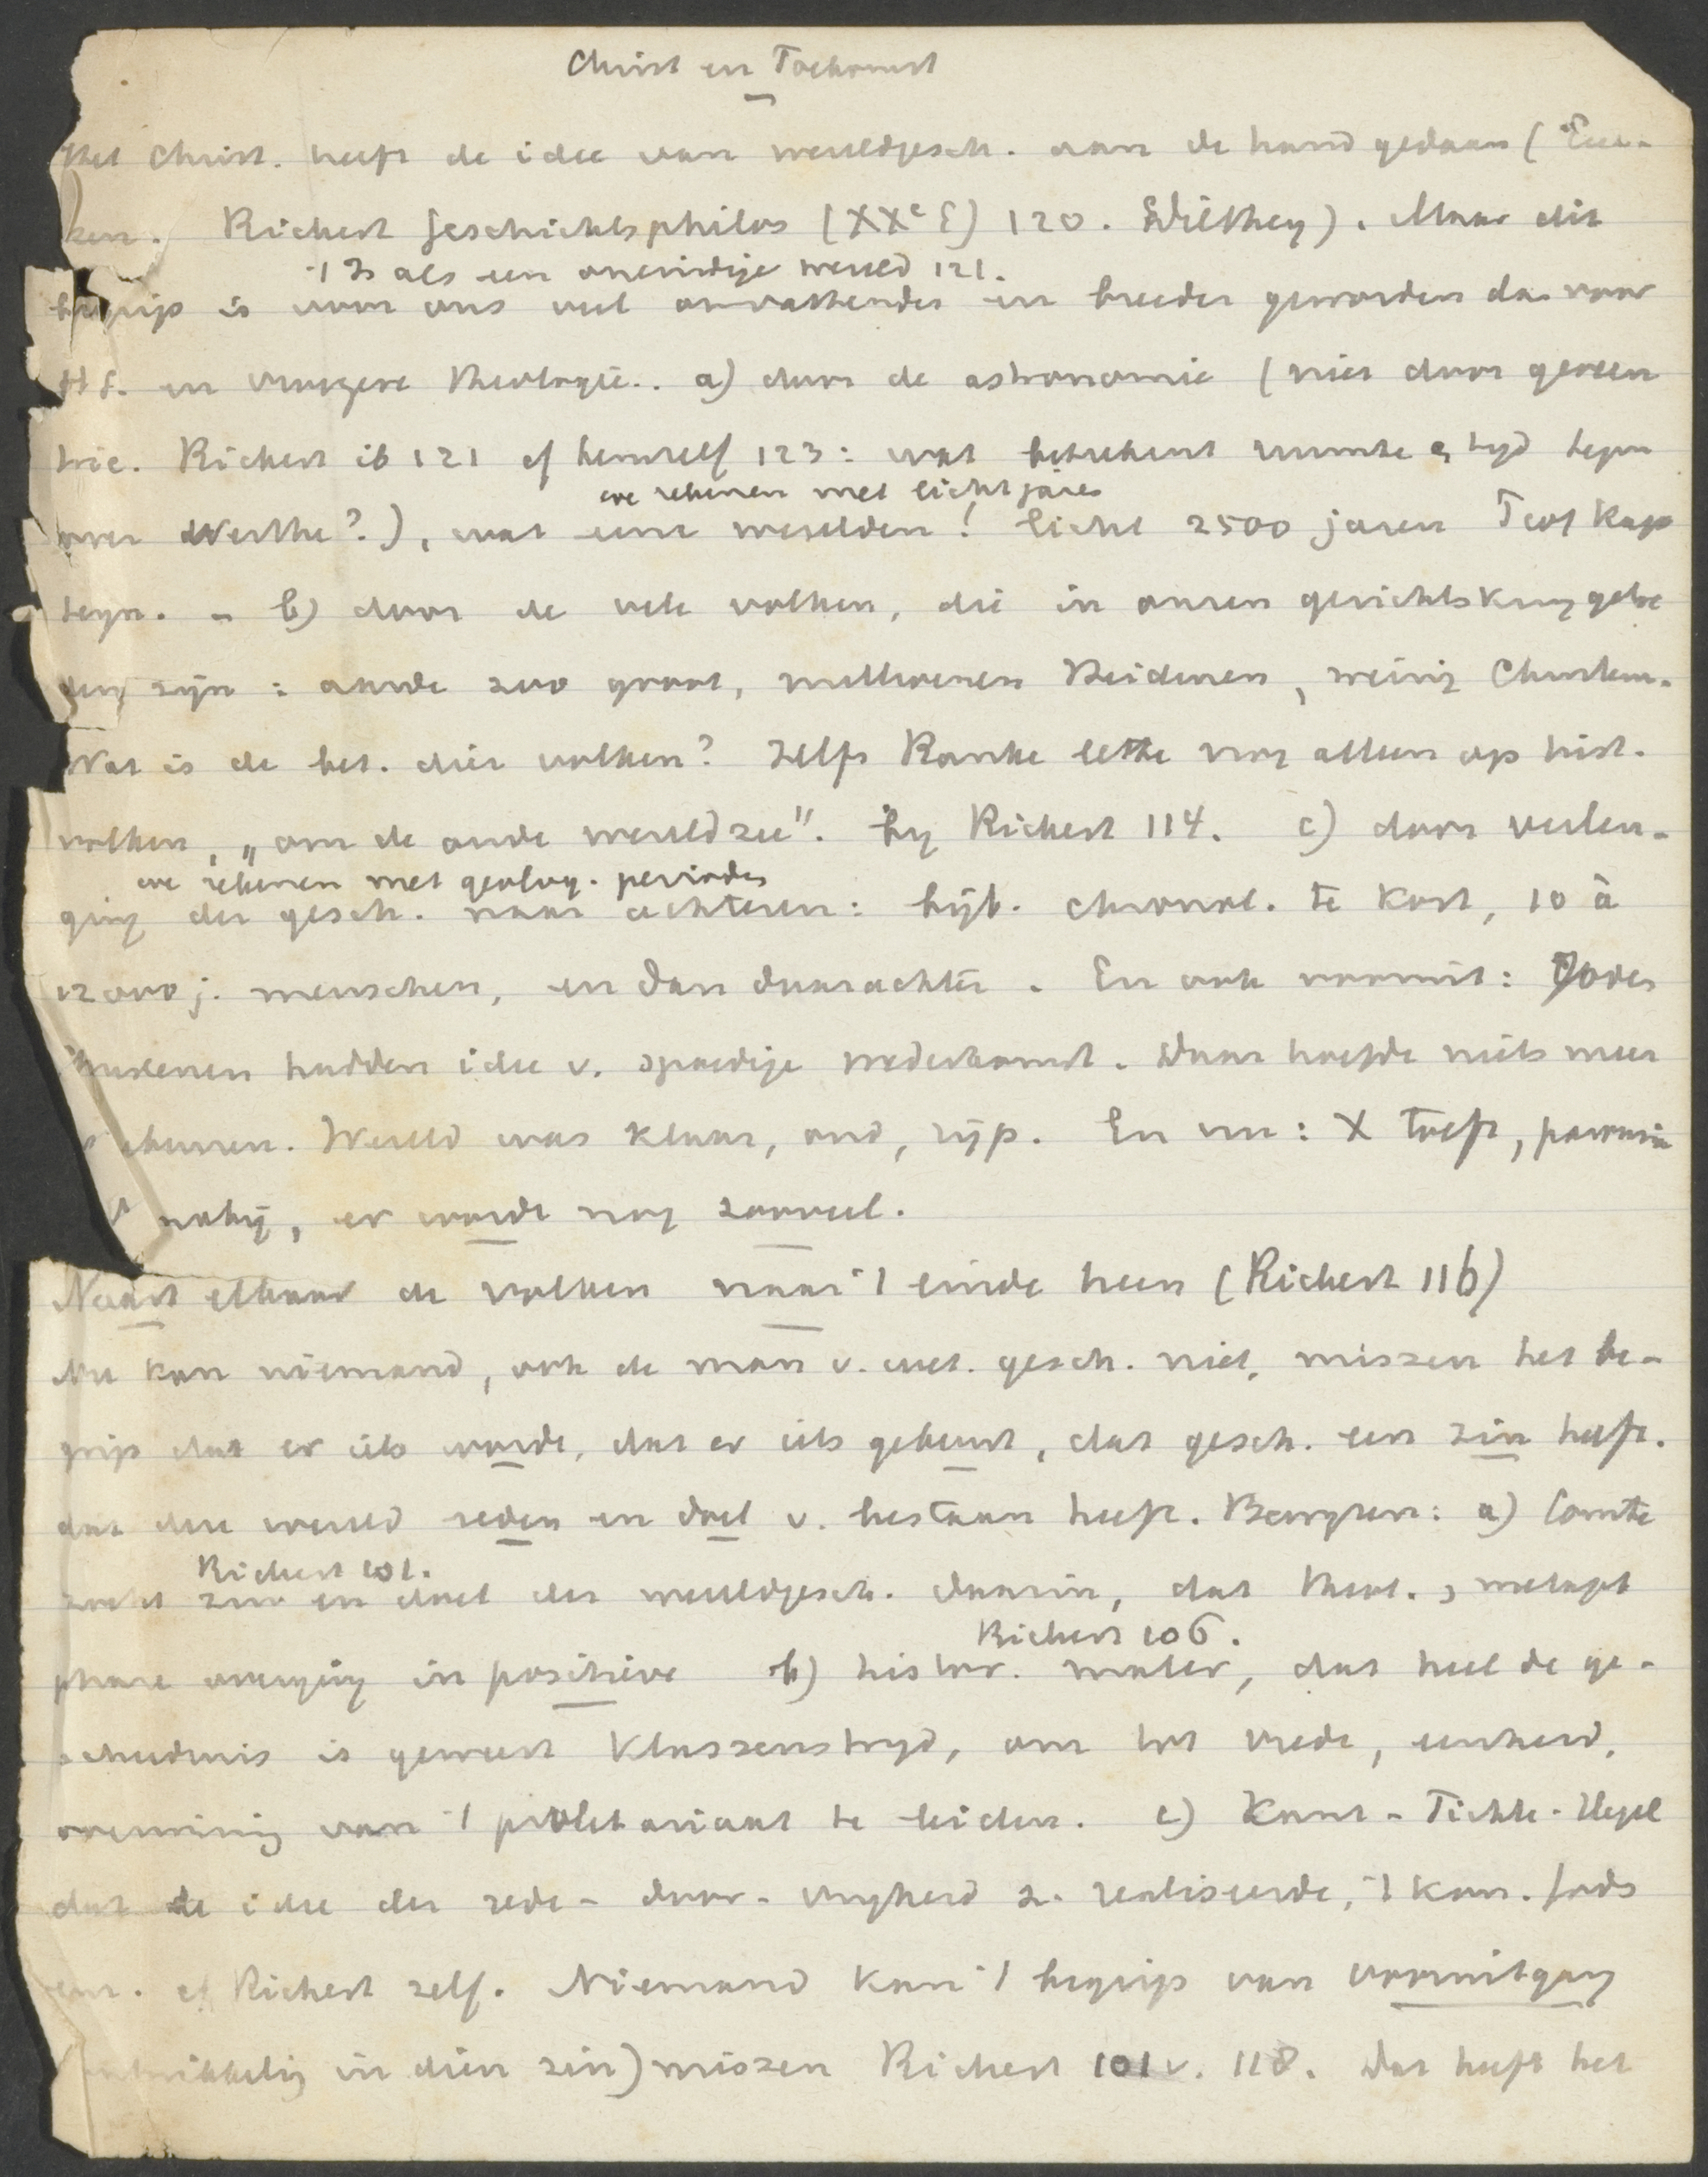 Christ en Toekomst
Het Christ. heeft de idee van wereldgesch. aan de hand gedaan (Euc-
ken. Rickert Geschichtsphilos (XXe E) 120. Dilthey). Maar dit
't Is als een oneindige wereld 121.
begrip is voor ons veel omvattender en breeder geworden dan voor
HS. en vroegere theologie.. a) door de astronomie (niet door geocen
trie. Rickert ib 121 cf hemzelf 123: wat beteekent ruimte & tijd tegen
we rekenen met lichtjaren
over Werthe?), wat eene werelden! licht 2500 jaren Prof Kap
teyn. - b) door de vele volken, die in onzen gezichtskring getre
den zijn: aarde zoo groot, millioenen Heidenen, weinig Christenen.
Wat is de bet. dier volken? Zelfs Ranke lette nog alleen op hist.
volken, „om de oude wereldzee". bij Rickert 114. c) door verlen-
we rekenen met geolog. perioden
ging der gesch. naar achteren: bijb. chronol. te kort, 10 à
12000 j. menschen, en dan daarachter. En ook vooruit: Joden
Christenen hadden idee v. spoedige wederkomst. Daar hoefde niets meer
te gebeuren. Wereld was klaar, oud, rijp. En nu: X toeft, parousie
is nabij, er wordt nog zooveel.
Naast elkaar de volken naar 't einde heen (Rickert 116)
Nu kan niemand, ook de man v. wet. gesch. niet, missen het be-
grip dat er iets wordt, dat er iets gebeurt, dat gesch. een zin heeft.
dat deze wereld reden en doel v. bestaan heeft. Bewijzen: a) Comte
Rickert 101.
zoekt zin en doel der wereldgesch. daarin, dat theol., metaph
Rickert 106.
phase overging in positieve b) histor. mater, dat heel de ge-
schiedenis is geweest klassenstrijd, om tot vrede, eenheid,
overwinning van 't proletariaat te leiden. c) Kant - Fichte - Hegel
dat de idee der rede - door - vrijheid z. realiseerde, 't kon. Gods
enz. cf Rickert zelf. Niemand kan 't begrip van vooruitgang
(ontwikkeling in dien zin) missen Rickert 101 v. 118. Dat heeft het